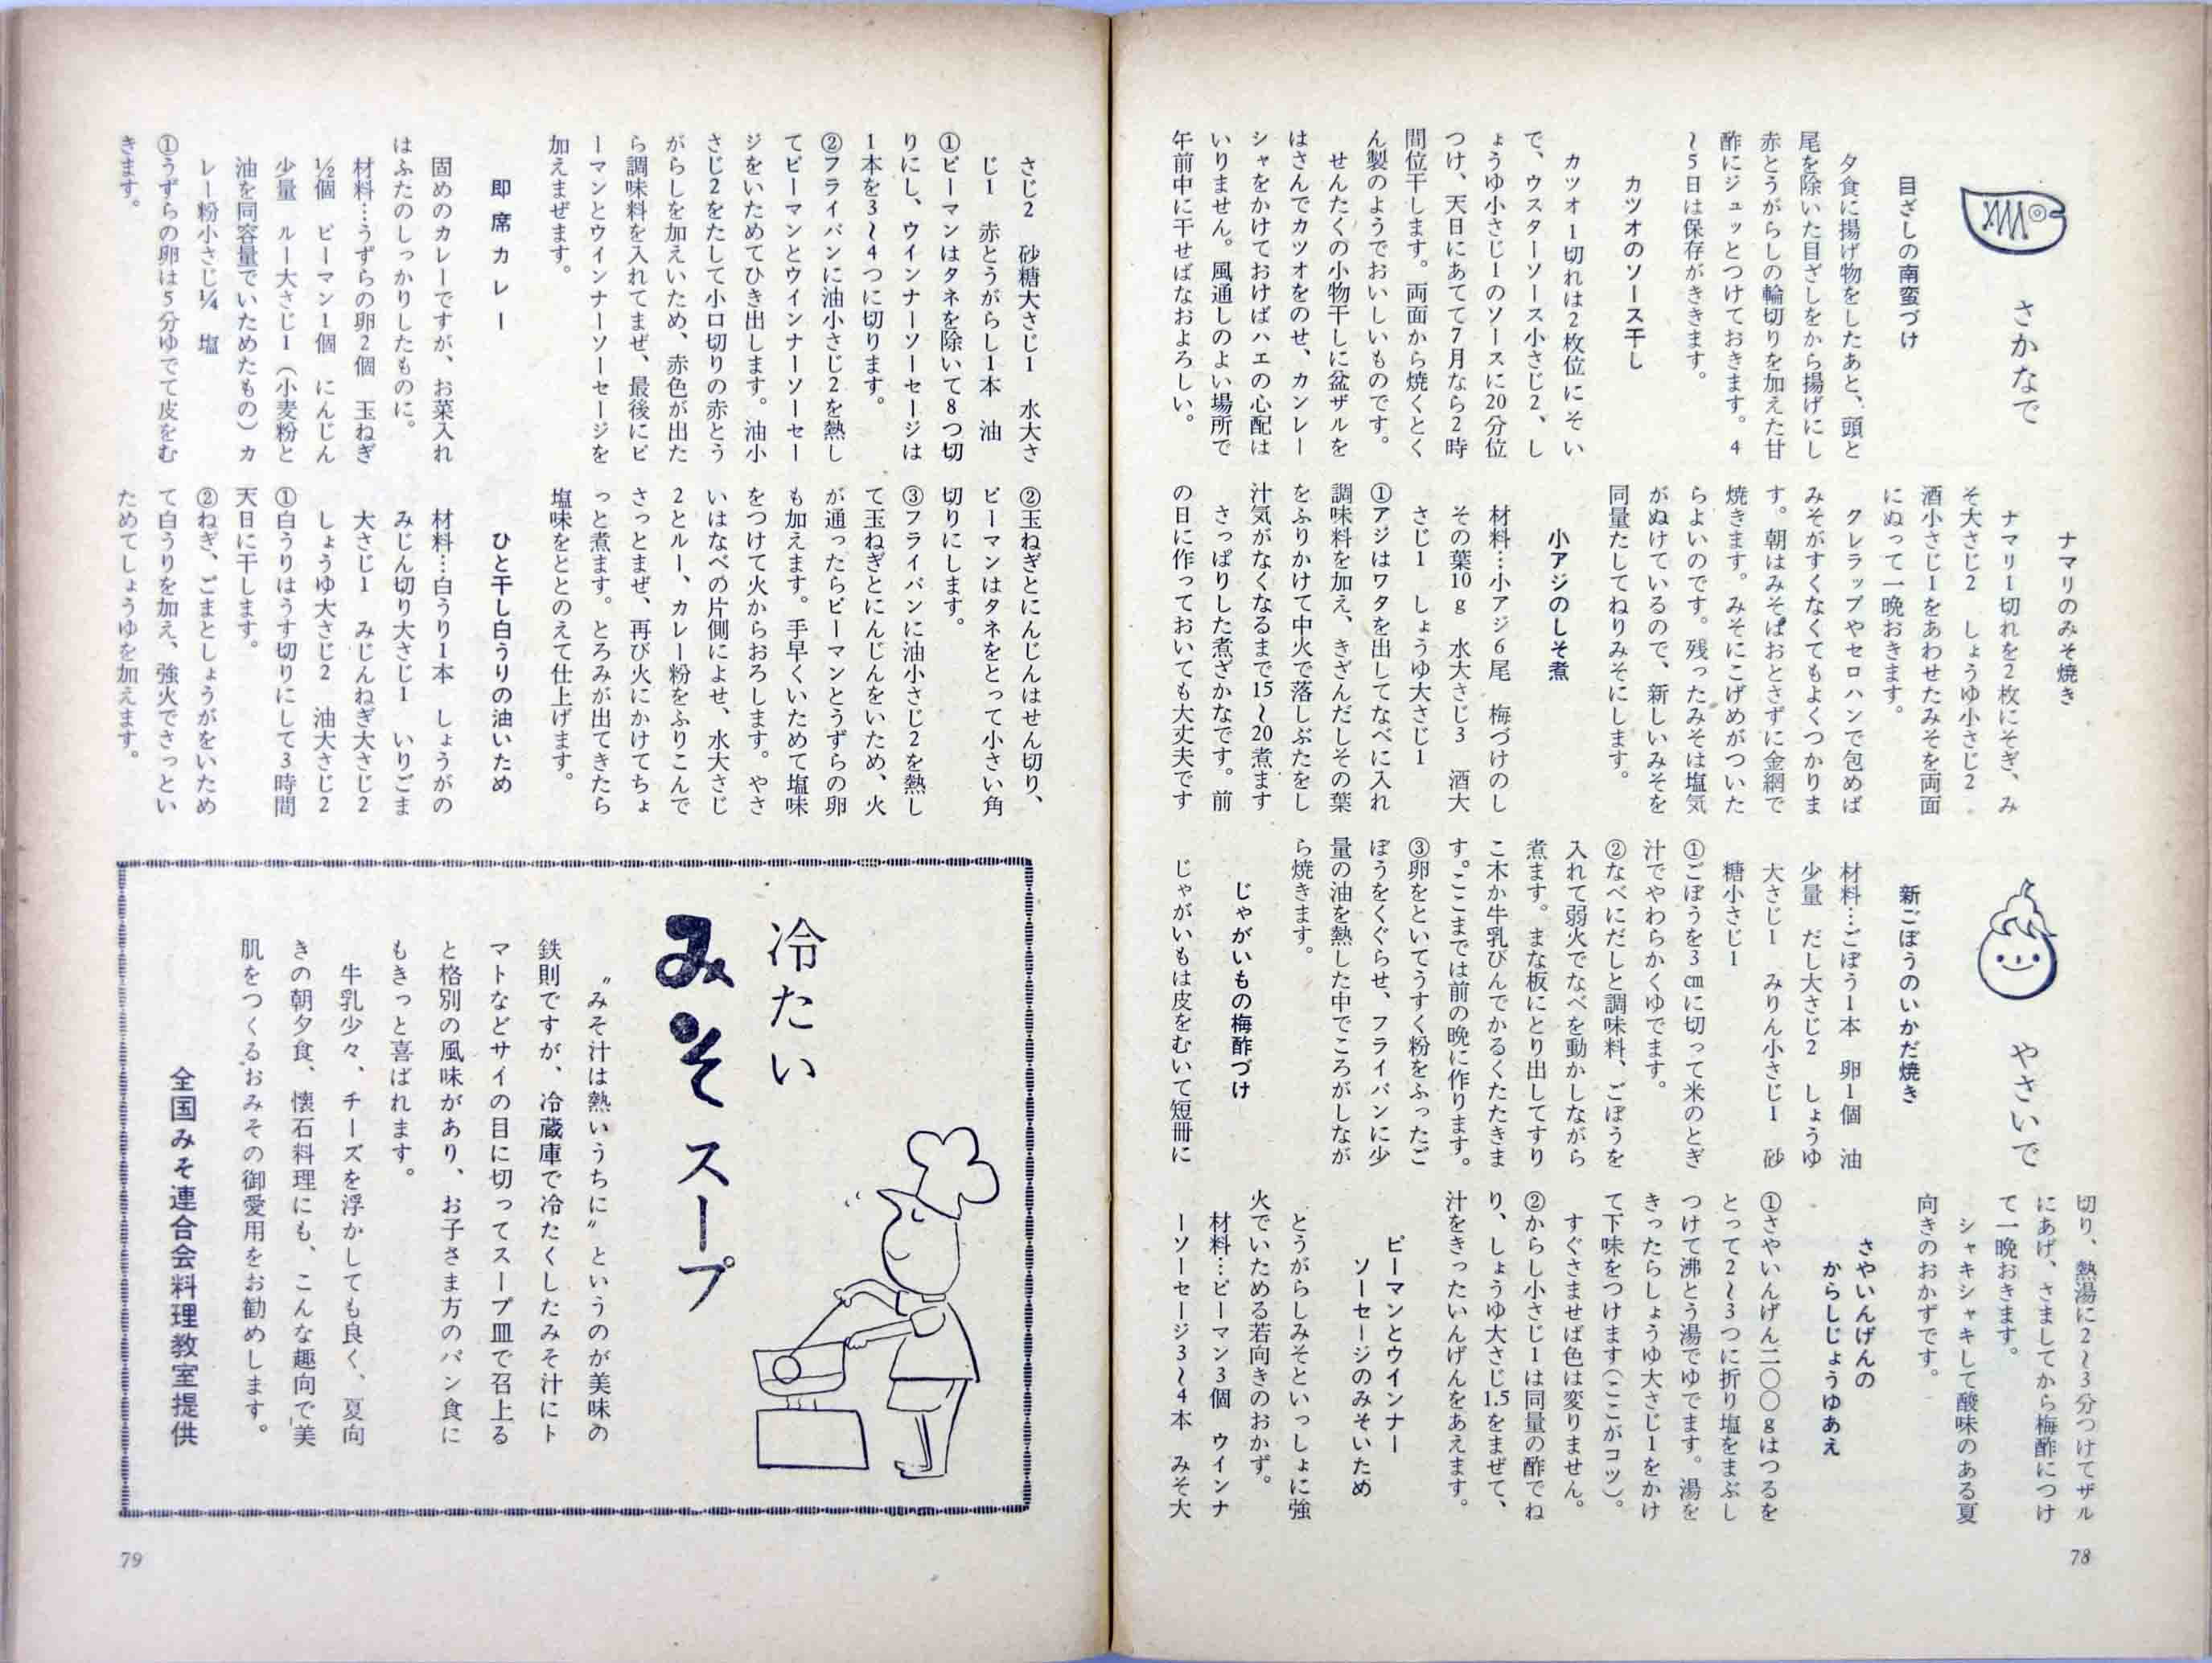 さかなで
目ざしの南蛮づけ
夕食に揚げ物をしたあと、頭と
尾を除いた目ざしをから揚げにし
赤とうがらしの輪切りを加えた甘
酢にジュッとつけておきます。4
~5日は保存がききます。
カツオのソース干し
カツオ1切れは2枚位にそい
で、ウスターソース小さじ2、し
ょうゆ小さじ1のソースに20分位
つけ、天日にあてて7月なら2時
間位干します。両面から焼くとく
ん製のようでおいしいものです。
せんたくの小物干しに盆ザルを
はさんでカツオをのせ、カンレー
シャをかけておけばハエの心配は
いりません。風通しのよい場所で
午前中に干せばなおよろしい。
ナマリのみそ焼き
ナマリ1切れを2枚にそぎ、み
そ大さじ2 しょうゆ小さじ2
酒小さじ1をあわせたみそを両面
にぬって一晩おきます。
クレラップやセロハンで包めば
みそがすくなくてもよくつかりま
す。朝はみそばおとさずに金網で
焼きます。みそにこげめがついた
らよいのです。残ったみそは塩気
がぬけているので、新しいみそを
同量たしてねりみそにします。
小アジのしそ煮
材料…小アジ6尾 梅づけのし
その葉10g 水大さじ3 酒大
さじ1 しょうゆ大さじ1
①アジはワタを出してなべに入れ
調味料を加え、きざんだしその葉
をふりかけて中火で落しぶたをし
汁気がなくなるまで15~20煮ます
さっぱりした煮ざかなです。前
の日に作っておいても大丈夫です
やさいで
新ごぼうのいかだ焼き
材料…ごぼう1本 卵1個 油
少量 だし大さじ2 しょうゆ
大さじ1 みりん小さじ1 砂
糖小さじ1
①ごぼうを3㎝に切って米のとぎ
汁でやわらかくゆでます。
②なべにだしと調味料、ごぼうを
入れて弱火でなべを動かしながら
煮ます。まな板にとり出してすり
こ木か牛乳びんでかるくたたきま
す。ここまでは前の晩に作ります。
③卵をといてうすく粉をふったご
ぼうをくぐらせ、フライパンに少
量の油を熱した中でころがしなが
ら焼きます。
じゃがいもの梅酢づけ
じゃがいもは皮をむいて短冊に
切り、熱湯に2~3分つけてザル
にあげ、さましてから梅酢につけ
て一晩おきます。
シャキシャキして酸味のある夏
向きのおかずです。
さやいんげんの
からしじょうゆあえ
①さやいんげん二〇〇gはつるを
とって2~3つに折り塩をまぶし
つけて沸とう湯でゆでます。湯を
きったらしょうゆ大さじ1をかけ
て下味をつけます(ここがコツ)。
すぐさませば色は変りません。
②からし小さじ1は同量の酢でね
り、しょうゆ大さじ1.5をまぜて、
汁をきったいんげんをあえます。
ピーマンとウインナー
ソーセージのみそいため
とうがらしみそといっしょに強
火でいためる若向きのおかず。
材料…ピーマン3個 ウインナ
ーソーセージ3~4本 みそ大
78
さじ2 砂糖大さじ1 水大さ
じ1 赤とうがらし1本 油
①ピーマンはタネを除いて8つ切
りにし、ウインナーソーセージは
1本を3~4つに切ります。
②フライパンに油小さじ2を熱し
てピーマンとウインナーソーセー
ジをいためてひき出します。油小
さじ2をたして小口切りの赤とう
がらしを加えいため、赤色が出た
ら調味料を入れてまぜ、最後にピ
ーマンとウインナーソーセージを
加えまぜます。
即席カレー
固めのカレーですが、お菜入れ
はふたのしっかりしたものに。
材料…うずらの卵2個 玉ねぎ
½個 ピーマン1個 にんじん
少量 ルー大さじ1(小麦粉と
油を同容量でいためたもの)カ
レー粉小さじ¼ 塩
①うずらの卵は5分ゆでて皮をむ
きます。
②玉ねぎとにんじんはせん切り、
ピーマンはタネをとって小さい角
切りにします。
③フライパンに油小さじ2を熱し
て玉ねぎとにんじんをいため、火
が通ったらピーマンとうずらの卵
も加えます。手早くいためて塩味
をつけて火からおろします。やさ
いはなべの片側によせ、水大さじ
2とルー、カレー粉をふりこんで
さっとまぜ、再び火にかけてちょ
っと煮ます。とろみが出てきたら
塩味をととのえて仕上げます。
ひと干し白うりの油いため
材料…白うり1本 しょうがの
みじん切り大さじ1 いりごま
大さじ1 みじんねぎ大さじ2
しょうゆ大さじ2 油大さじ2
①白うりはうす切りにして3時間
天日に干します。
②ねぎ、ごまとしょうがをいため
て白うりを加え、強火でさっとい
ためてしょうゆを加えます。
冷たい
みそスープ
〝みそ汁は熱いうちに〟というのが美味の
鉄則ですが、冷蔵庫で冷たくしたみそ汁にト
マトなどサイの目に切ってスープ皿で召上る
と格別の風味があり、お子さま方のパン食に
もきっと喜ばれます。
牛乳少々、チーズを浮かしても良く、夏向
きの朝夕食、懐石料理にも、こんな趣向で美
肌をつくるおみその御愛用をお勧めします。
全国みそ連合会料理教室提供
79